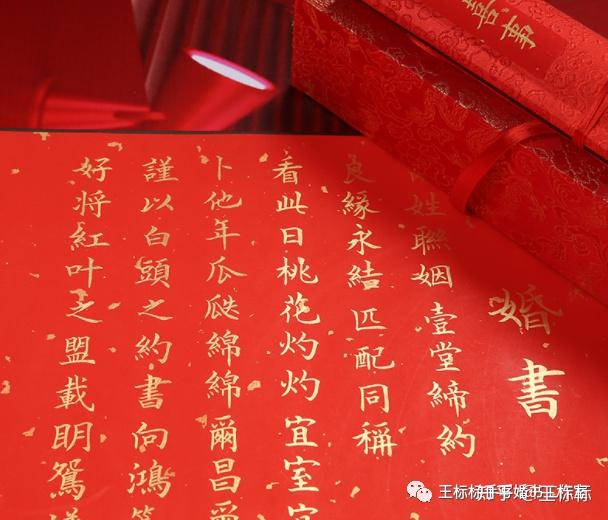 喜事
婚書
姓聯姻 壹堂締約
良緣永結 匹配同稱
看此日桃花灼灼 宜室宜
卜他年瓜瓞綿綿 爾昌爾
謹以白頭之約書向鴻
好將紅叶之盟載明鴛
知乎 @王标标